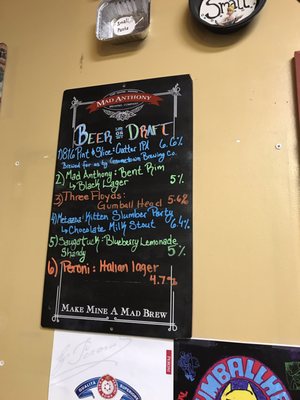 Small
Pasta
Small
MAD ANTHONY
BREWING COMPANY
BEER ON DRAFT
Pint & Slice: Gutter Pd 6.6%
Brewed for us by Germantown Brewing Co.
2) Mad Anthony: Bent Rim
↳ Black Lager 5%
3) Three Floyds:
Gumball Head 5.6%
4) Metazoa: Kitten Slumber Party
↳ Chocolate Milk Stout 6.4%
5) Saugatuck: Blueberry Lemonade
Shandy 5%
6) Peroni: Italian lager
4.7%
MAKE MINE A MAD BREW
GUMBALLHEAD